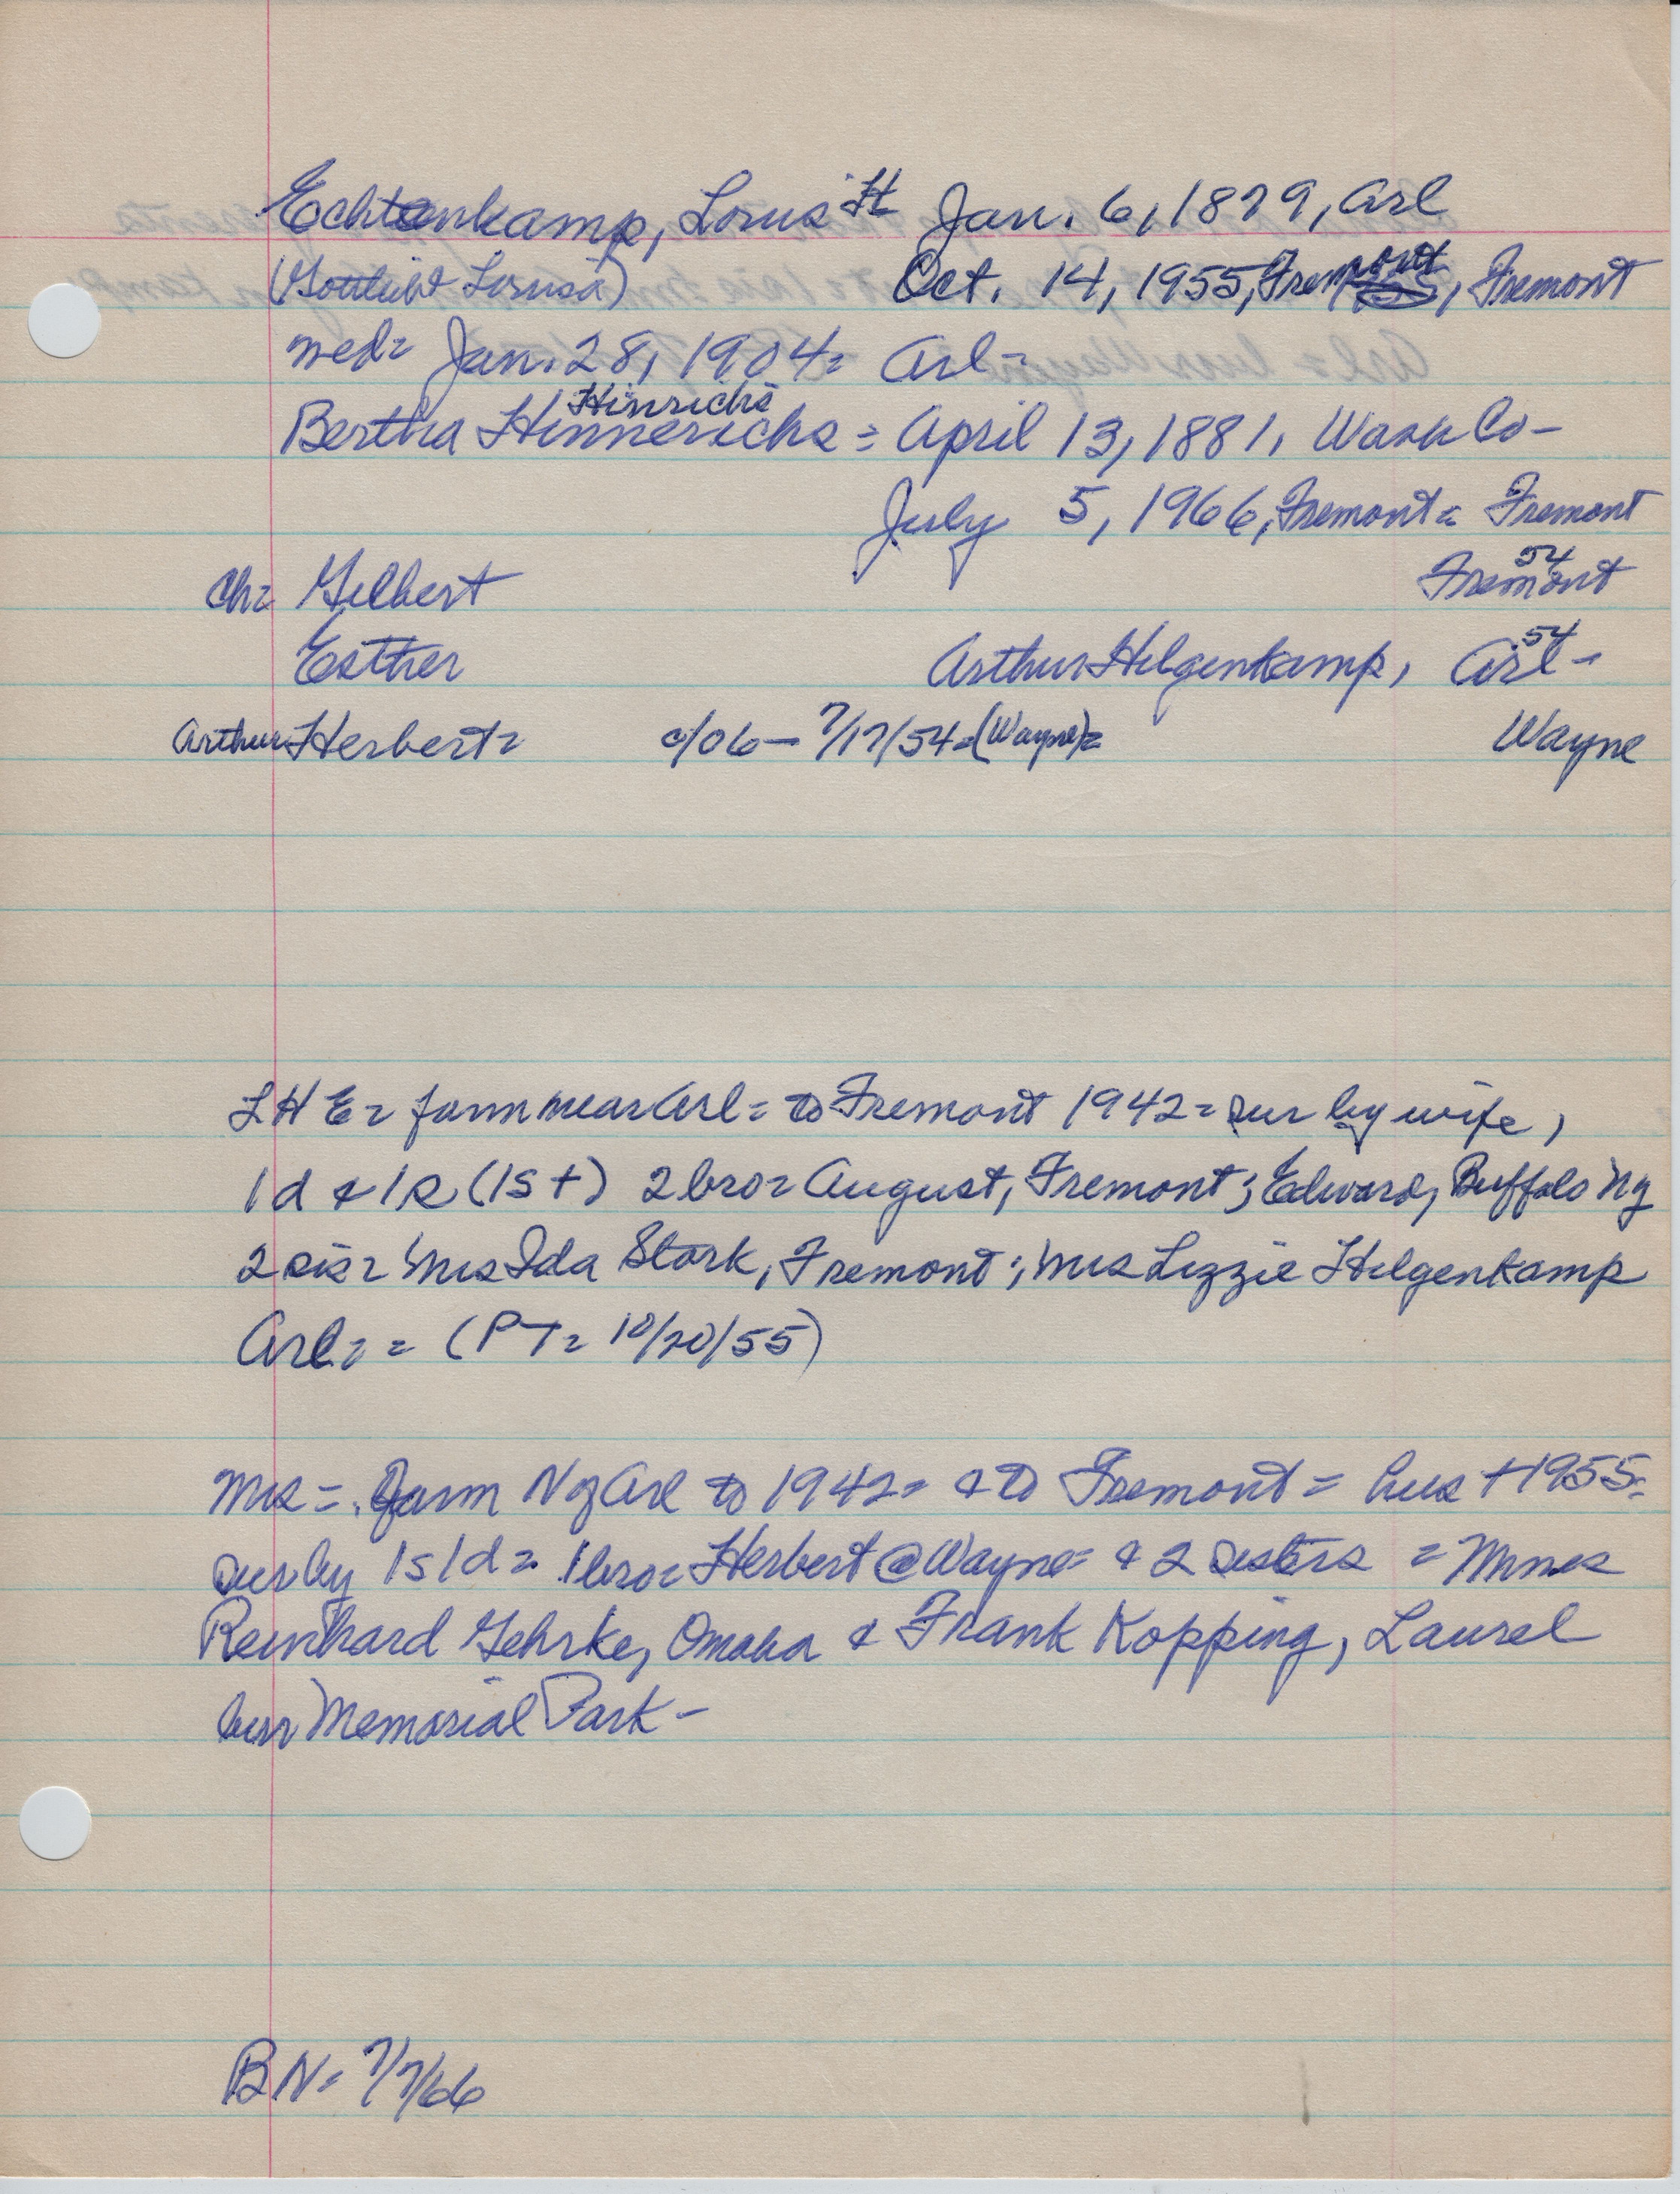 Echtenkamp, Louis H Jan. 6, 1879, Arl
(Gottlieb & Louisa) Oct. 14, 1955, Fremont, Fremont
med= Jan. 28, 1904= Arl=
Hinrichs
Bertha Hinnerichs = April 13, 1881, Wash Co-
July 5, 1966, Fremont= Fremont
54
Ch= Gilbert Fremont
54
Esther Arthur Hilgenkamp, Arl-
Arthur Herbert= c/06- 7/17/54=(Wayne)= Wayne
LHE= farm near Arl= to Fremont 1942= sur by wife,
1d & 1s (1s+) 2 bro= August, Fremont; Edward, Buffalo Ny
2 sis= Mrs Ida Stork, Fremont; Mrs Lizzie Hilgenkamp
Arl== (PT= 10/20/55)
Mrs=. Farm N of Arl to 1942= & to Fremont= hus +1955=
sur by 1s1d= 1bro= Herbert @ Wayne= & 2 sisters = Mmes
Reinhard Gehrke, Omaha & Frank Kopping, Laurel
bur Memorial Park-
BN= 7/7/66